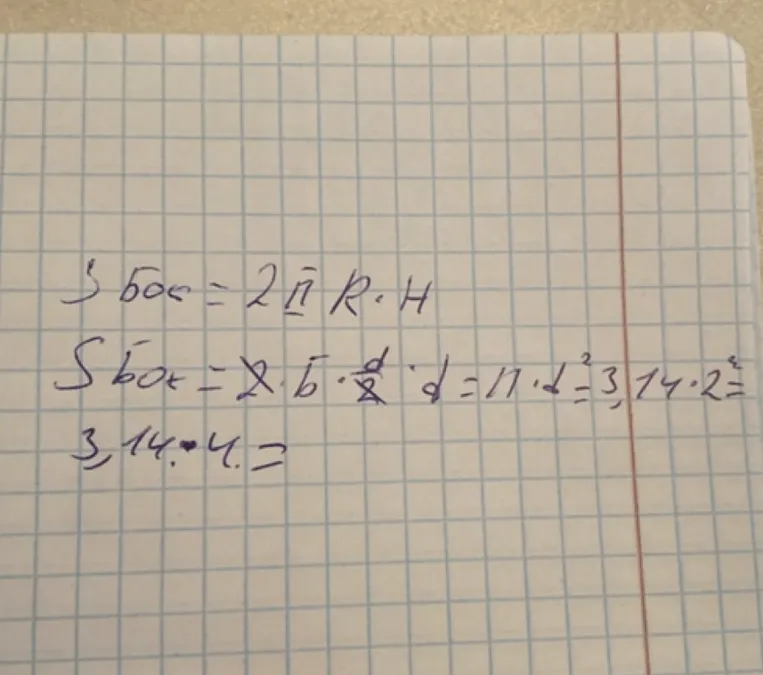 S бок = 2 П R · H
S бок = 2 · Б · d/2 · d = П · d² = 3,14 · 2² =
3,14 · 4 =